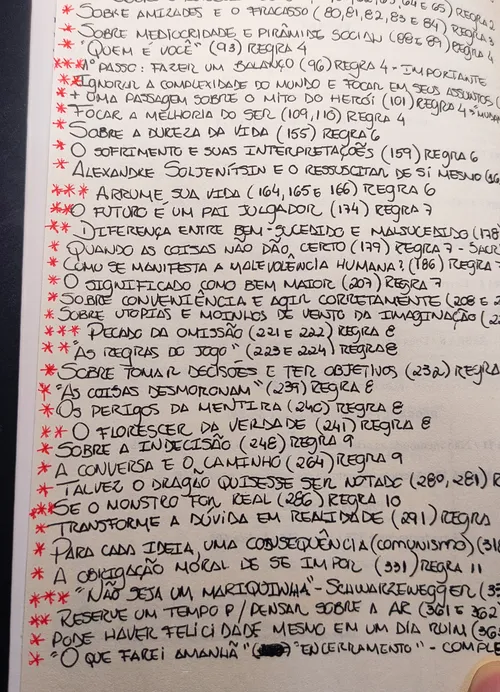 64 E 65) REGRA 2
* SOBRE AMIZADES E O FRACASSO (80,81,82,83 E 84) REGRA 3
* SOBRE MEDIOCRIDADE E PIRÂMIDE SOCIAL (88 E 89) REGRA 4
* "QUEM É VOCÊ" (93) REGRA 4
*** 1º PASSO: FAZER UM BALANÇO (96) REGRA 4 - IMPORTANTE
** IGNORAR A COMPLEXIDADE DO MUNDO E FOCAR EM SEUS ASSUNTOS
* + UMA PASSAGEM SOBRE O MITO DO HERÓI (101) REGRA 4
* FOCAR A MELHORIA DO SER (109,110) REGRA 4
* SOBRE A DUREZA DA VIDA (155) REGRA 6
* O SOFRIMENTO E SUAS INTERPRETAÇÕES (159) REGRA 6
* ALEXANDRE SOLJENÍTSIN E O RESSUSCITAR DE SI MESMO
*** ARRUME SUA VIDA (164,165 E 166) REGRA 6
** O FUTURO É UM PAI JULGADOR (174) REGRA 7
** DIFERENÇA ENTRE BEM-SUCEDIDO E MALSUCEDIDO (178
* QUANDO AS COISAS NÃO DÃO CERTO (177) REGRA 7 - SACR
* COMO SE MANIFESTA A MALEVOLÊNCIA HUMANA? (186) REGRA
* O SIGNIFICADO COMO BEM MAIOR (207) REGRA 7
* SOBRE CONVENIÊNCIA E AGIR CORRETAMENTE (208 E 2
* SOBRE UTOPIAS E MOINHOS DE VENTO DA IMAGINAÇÃO
*** PECADO DA OMISSÃO (221 E 222) REGRA 8
** "AS REGRAS DO JOGO" (223 E 224) REGRA 8
* SOBRE TOMAR DECISÕES E TER OBJETIVOS (232) REGRA
* "AS COISAS DESMORONAM" (239) REGRA 8
* OS PERIGOS DA MENTIRA (240) REGRA 8
** O FLORESCER DA VERDADE (241) REGRA 8
* SOBRE A INDECISÃO (248) REGRA 9
* A CONVERSA E O CAMINHO (264) REGRA 9
* TALVEZ O DRAGÃO QUISESSE SER NOTADO (280, 281) R
** SE O MONSTRO FOR REAL (286) REGRA 10
* TRANSFORME A DÚVIDA EM REALIDADE (291) REGRA
* PARA CADA IDEIA, UMA CONSEQUÊNCIA (COMUNISMO) (31
* A OBRIGAÇÃO MORAL DE SE IMPOR (331) REGRA 11
*** "NÃO SEJA UM MARIQUINHA" - SCHWARZENEGGER (33
** RESERVE UM TEMPO P/ PENSAR SOBRE A AR (361 E 362
* PODE HAVER FELICIDADE MESMO EM UM DIA RUIM (36
* "O QUE FAREI AMANHÃ" ( "ENCERRAMENTO" - COMPLE